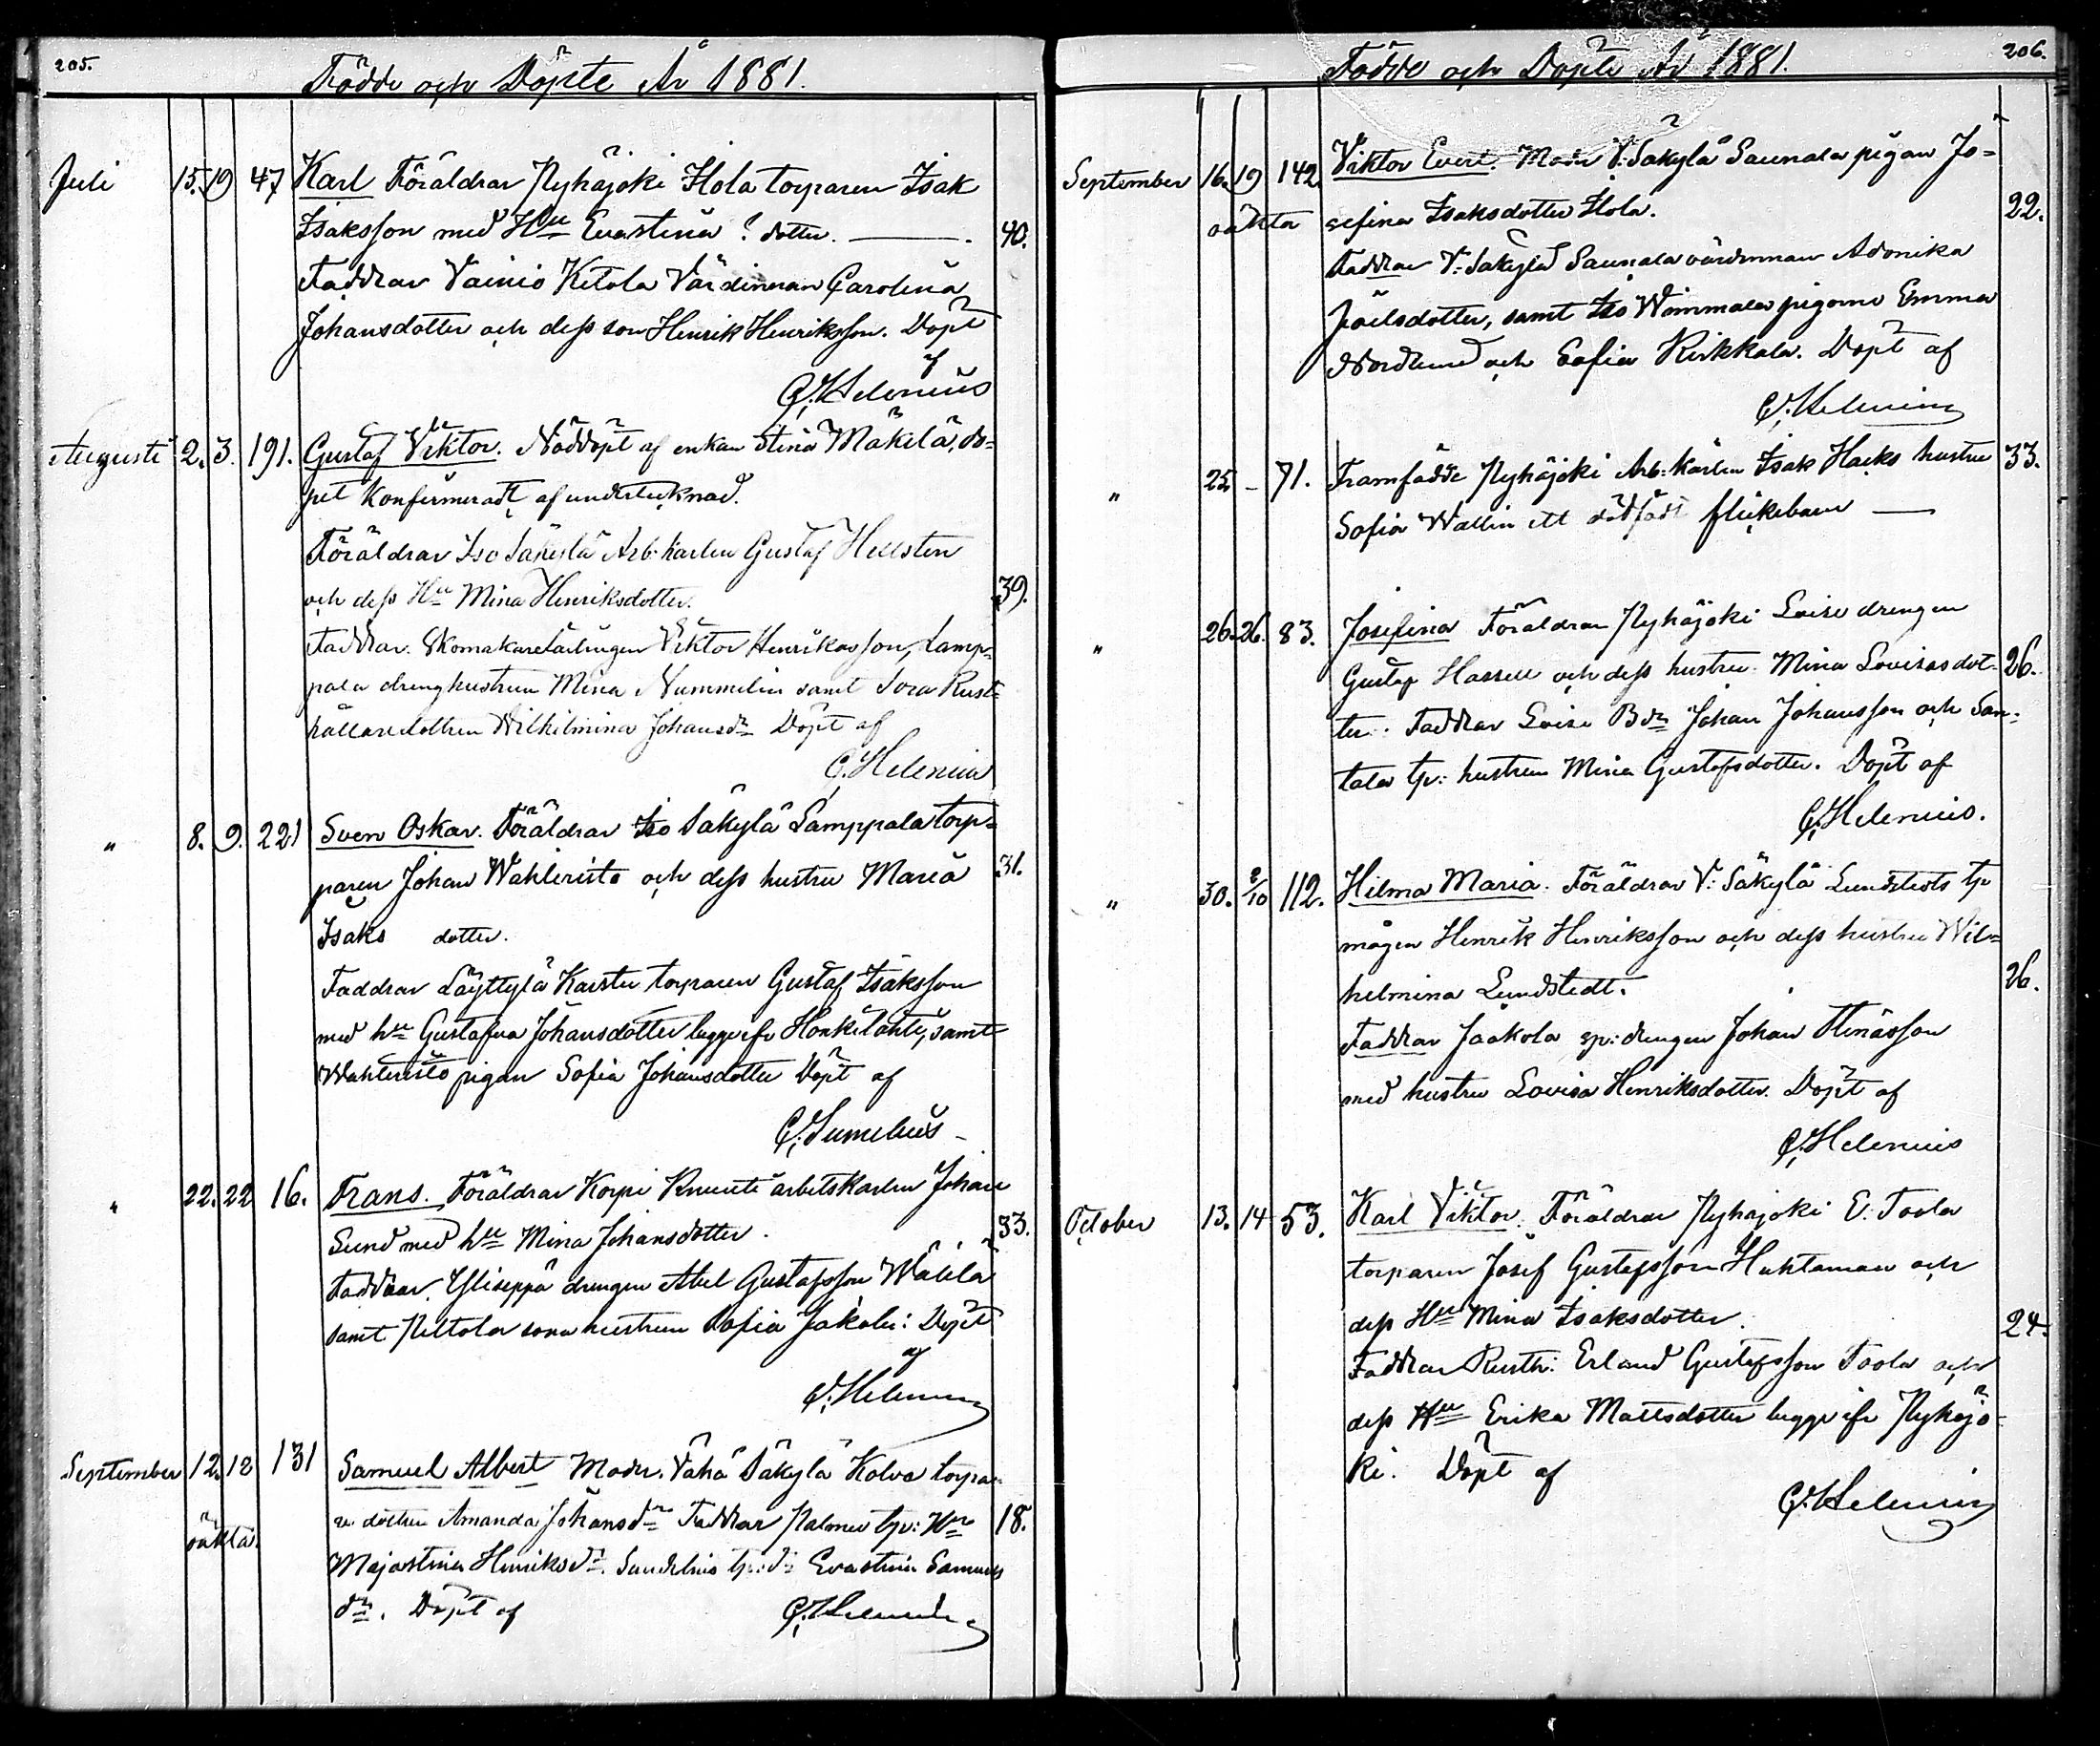 205.
Födde och Döpte År 1881.
Juli 15. 19 47 Karl Föräldrar Pyhäjoki Ilola torparen Isak
Isaksson med Hu Evastina ? dotter. 40.
Faddrar Vainio Ketola Värdinnan Carolina
Johansdotter och dess son Henrik Henriksson. Döpt
af
C. Helenius
Augusti 2. 3. 191. Gustaf Viktor. Nöddöpt af enkan Stina Mäkilä, do-
pet konfirmeradt af undertecknad.
Föräldrar Iso Säkylä Arb: karlen Gustaf Hellsten
och dess Hu Mina Henriksdotter. 39.
Faddrar. Skomakarelärlingen Viktor Henriksson, Lamp-
pala drenghustrun Mina Nummelin samt Sora Rust-
hållaredottren Wilhelmina Johansdr Döpt af
C. Helenius
" 8. 9. 221 Sven Oskar. Föräldrar Iso Säkylä Lamppala torp-
paren Johan Wahleristo och dess hustru Maria 31.
Isaks dotter.
Faddrar Löyttylä Karstu torparen Gustaf Isaksson
med hu Gustafva Johansdotter begge ifr Honkilahti, samt
Wahleristo pigan Sofia Johansdotter Döpt af
" 22. 22 16. Frans. Föräldrar Korpi Knuuti arbetskarlen Johan
Sund med hu Mina Johansdotter. 33.
Faddrar. Yliseppä drengen Abel Gustafsson Wälilä
samt Peltola sona hustrun Sofia Jakobi: Döpt
af
C. Helenius
September 12. 12 131 Samuel Albert Moder. Vähä Säkylä Kolva torpa-
oäkta. re dottren Amanda Johansdr Faddrar Palmu tp: Hu 18.
Majastina Henriksdr. Sundelius tp: dr Evastina Samuels
dr. Döpt af C. Helenius
206.
Födde och Döpte År 1881.
September 16. 19 142. Viktor Evert. Moder V: Säkylä Saunala pigan Jo-
oäkta sefina Isaksdotter Ilola. 22.
Faddrar V: Säkylä Saunala värdinnan Adonika
Joelsdotter, samt Iso Wimmala pigorne Emma
Nordlund och Sofia Kirkkala. Döpt af
C. Helenius
" 25 – 71. Framfödde Pyhäjoki Arb: karlen Isak Hacks hustru 33.
Sofia Wallin ett dödfödt flickebarn —
" 26. 26. 83. Josefina Föräldrar Pyhäjoki Loise drengen
Gustaf Hassell och dess hustru Mina Lovisasdot- 26.
ter. Faddrar Loise Bdn Johan Johansson och San-
tala tp: hustrun Mina Gustafsdotter. Döpt af
C. Helenius.
" 30. 2/10 112. Hilma Maria. Föräldrar V: Säkylä Lundstedts tp
mågen Henrik Henriksson och dess hustru Wil-
helmina Lundstedt. 26.
Faddrar Jaakola sp: drengen Johan Stinasson
med hustru Lovisa Henriksdotter. Döpt af
C. Helenius
October 13. 14 53. Karl Viktor. Föräldrar Pyhäjoki E. Toola
torparen Josef Gustafsson Huhtamaa och
dess Hu Mina Isaksdotter. 24.
Faddrar Rusth: Erland Gustafsson Toola och
dess Hu Erika Mattsdotter begge ifr Pyhäjo-
ki. Döpt af
C. Helenius